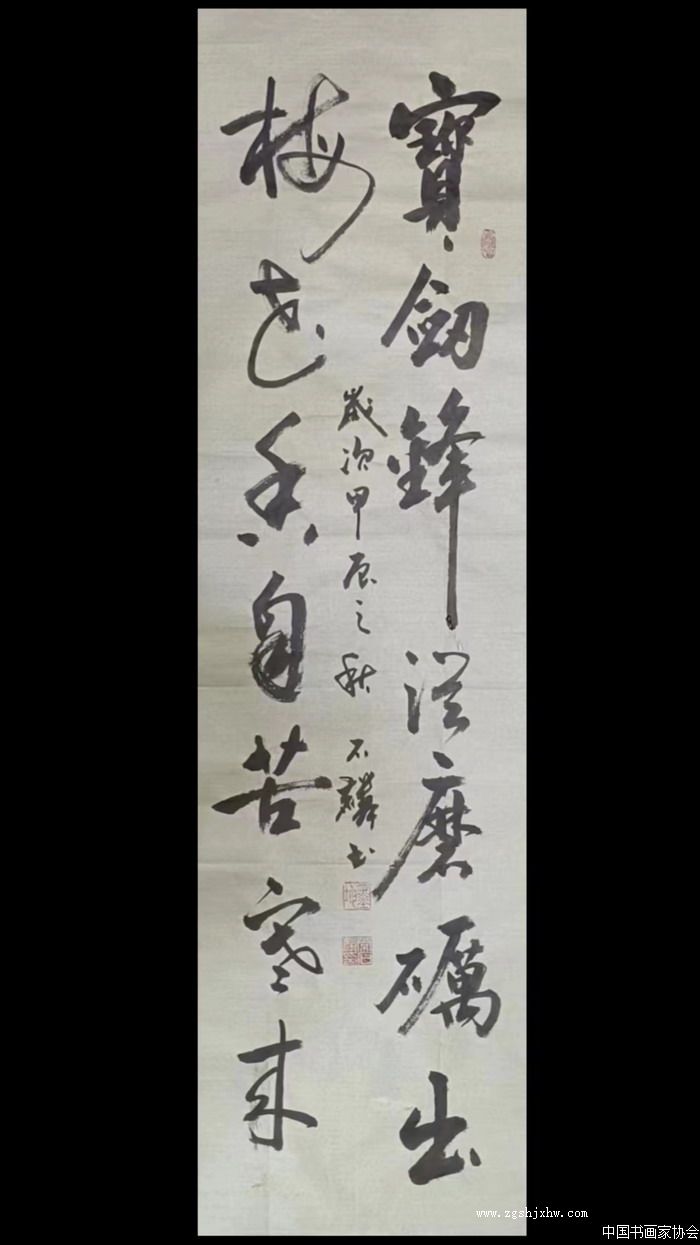 寶劍鋒從磨礪出
梅花香自苦寒來
歲次甲辰之秋 石麟书
www.zgshjxhw.com
中国书画家协会